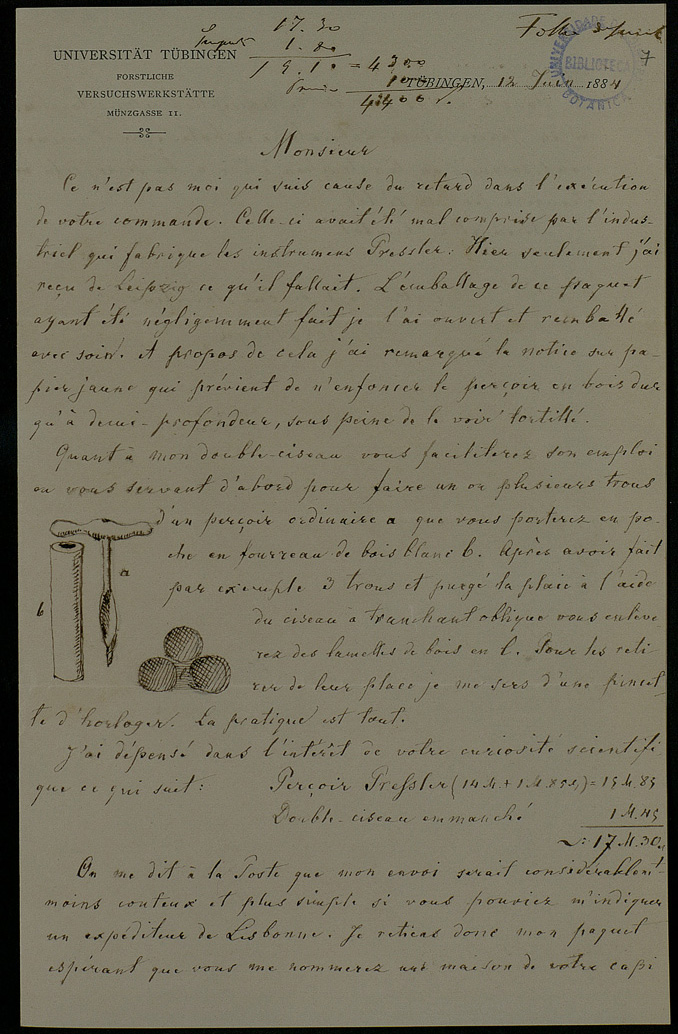 17.30
1.80
19.10 = 4300
100
4400
7
UNIVERSIDADE
BIBLIOTECA
BOTANICA
UNIVERSITÄT TÜBINGEN
FORSTLICHE
VERSUCHSWERKSTÄTTE
MÜNZGASSE 11.
TÜBINGEN, 12 Juin 1884
Monsieur
Ce n'est pas moi qui suis cause du retard dans l'exécution
de votre commande. Celle-ci avait été mal comprise par l'indus-
triel qui fabrique les instrumens Pressler: Hier seulement j'ai
reçu de Leipzig ce qu'il fallait. L'emballage de ce paquet
ayant été négligemment fait je l'ai ouvert et remballé
avec soin. et propos de cela j'ai remarqué la notice sur pa-
pier jaune qui prévient de n'enfoncer le perçoir en bois dur
qu'à demi-profondeur, sous peine de le voir tortillé.
Quant à mon double-ciseau vous faciliterez son emploi
en vous servant d'abord pour faire un or plusieurs trous
d'un perçoir ordinaire a que vous porterez en po-
che en fourreau de bois blanc b. Après avoir fait
par exemple 3 trous et purgé la plaie à l'aide
du ciseau à tranchant oblique vous enlève
rez des lamelles de bois en l. Pour les reti-
rer de leur place je me sers d'une pincet
te d'horloger. La pratique est tout.
a
b
J'ai dépensé dans l'intérêt de votre curiosité scientifi
que ce qui suit: Perçoir Pressler (14 M. + 1 M. 85) = 15 M. 85
Double-ciseau emmanché 1 M. 45
17 M. 30
On me dit à la Poste que mon envoi serait considérablent
moins couteux et plus simple si vous pouviez m'indiquer
un expéditeur de Lisbonne. Je retiens donc mon paquet
espérant que vous me nommerez une maison de votre capi